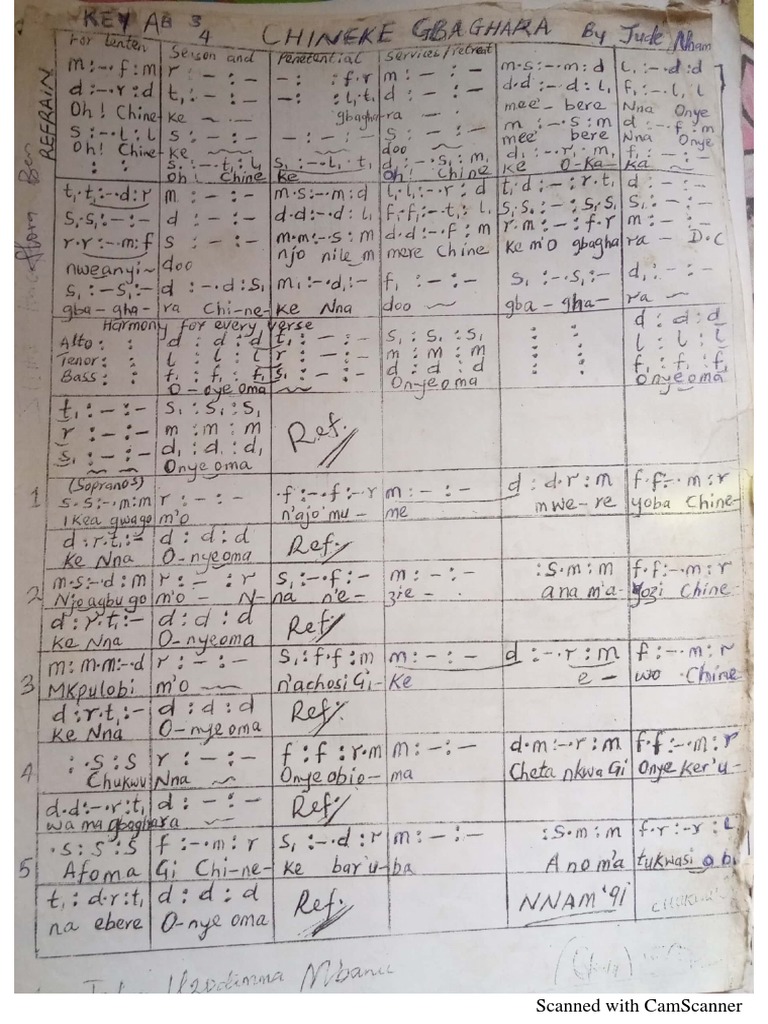 KEY AB 3/4 CHINEKE GBAGHARA By Jude Nnam
For Lenten Season and Penetential Services/retreat
REFRAIN
m:-.f:m | r :-:- | -: :f.r | m :-:- | m.s:-.m:d | l₁:-.d:d
d:-.r:d | t₁:-:- | -: :l₁.t₁ | d :-:- | d.d:-.d:l₁ | f₁:-.l₁:l₁
Oh! Chine | ke | gbagha- | ra — | mee- bere | Nna Onye
s:-.l:l | s :-:- | -:-:- | s :-:- | m :-.s:m | d :-.f:m
Oh! Chine- | ke | doo | mee' bere | Nna Onye
: : | s₁:-.t₁:l₁ | s₁:-.l₁.t₁ | d₁:-.s₁:m₁ | d₁:-.r₁:m₁ | f₁:-:-
Oh! Chine | ke | Oh! Chine | ke O-Ka- | ka ~
t₁.t₁:-.d:r | m :-:- | m.s:-.m:d | l₁.l₁:-.r:d | t₁.d:-:r.t₁ | d :-:-
s₁.s₁:-:- | d :-:- | d.d:-.d:l₁ | f₁.f₁:-.t₁:l₁ | s₁.s₁:-:s₁.s₁ | s₁:-:-
r.r:-.m:f | s :-:- | m.m:-.s:m | d.d:-.f:m | r.m:-:f.r | m:-:-
nweanyi~ | doo | njo nile m | mere Chine | ke m'o gbagha | ra — D.C
s₁:-.s₁:- | d :-.d:s₁ | m₁:-.d₁:- | f₁ :-:- | s₁ :-.s₁:- | d₁:-:-
gba-gha- | ra Chi-ne- | ke Nna | doo ~ | gba-gha- | ra ~
Harmony for every verse
Alto: : | d : d : d | t₁:-:- | s₁ : s₁ : s₁ | : : | d : d : d
Tenor: : | l : l : l | r :-:- | m : m : m | : : | l : l : l
Bass: : | f₁ : f₁ : f₁ | s₁:-:- | d : d : d | : : | f₁ : f₁ : f₁
O-nye oma | ~ | Onyeoma | Onyeoma
t₁:-:- | s₁ : s₁ : s₁
r :-:- | m : m : m | Ref.
s₁:-:- | d₁ : d₁ : d₁
~ ~ | Onyeoma
(Sopranos)
1 s.s:-.m:m | r :-:- | .f:-.f:-.r | m:-:- | d : d.r : m | f.f:-.m:r
Ikea gwago | m'o | n'ajo mu- | me | mwe-re | yoba Chine-
d:r.t₁:- | d : d : d | Ref.
ke Nna | O-nyeoma
2 m.s:-.d:m | r :- :r | s₁:-.f:- | m :-:- | :s.m:m | f.f:-.m:r
Njo agbu go | m'o — N- | na n'e- | zie- | ana m'a- | yozi Chine-
d:r.t₁:- | d : d : d | Ref.
ke Nna | O-nyeoma
3 m:m.m:-.d | r :-:- | s₁:f.f:m | m:-:- | d :-.r:m | f:-.m:r
Mkpulobi | m'o ~ | n'achosi Gi- | ke | e- | wo Chine
d:r.t₁:- | d : d : d | Ref.
ke Nna | O-nyeoma
4 : .s:s | r :-:- | f:f:r.m | m:-:- | d.m:-.r:m | f.f:-.m:r
Chukwu | Nna ~ | Onye obio- | ma | Cheta nkwa Gi | Onye ker'u-
d.d:-.r:t₁ | d :-:- | Ref.
wa ma gbaghara ~
5 .s:s:s | f :-.m:r | s₁:-.d:r | m:-:- | :s.m:m | f.r:-r:l
Afoma | Gi Chi-ne- | ke bar'u- | ba | A nom'a | tukwasi obi
t₁:d.r:t₁ | d : d : d | Ref. | NNAM '91
na ebere | O-nye oma
Scanned with CamScanner